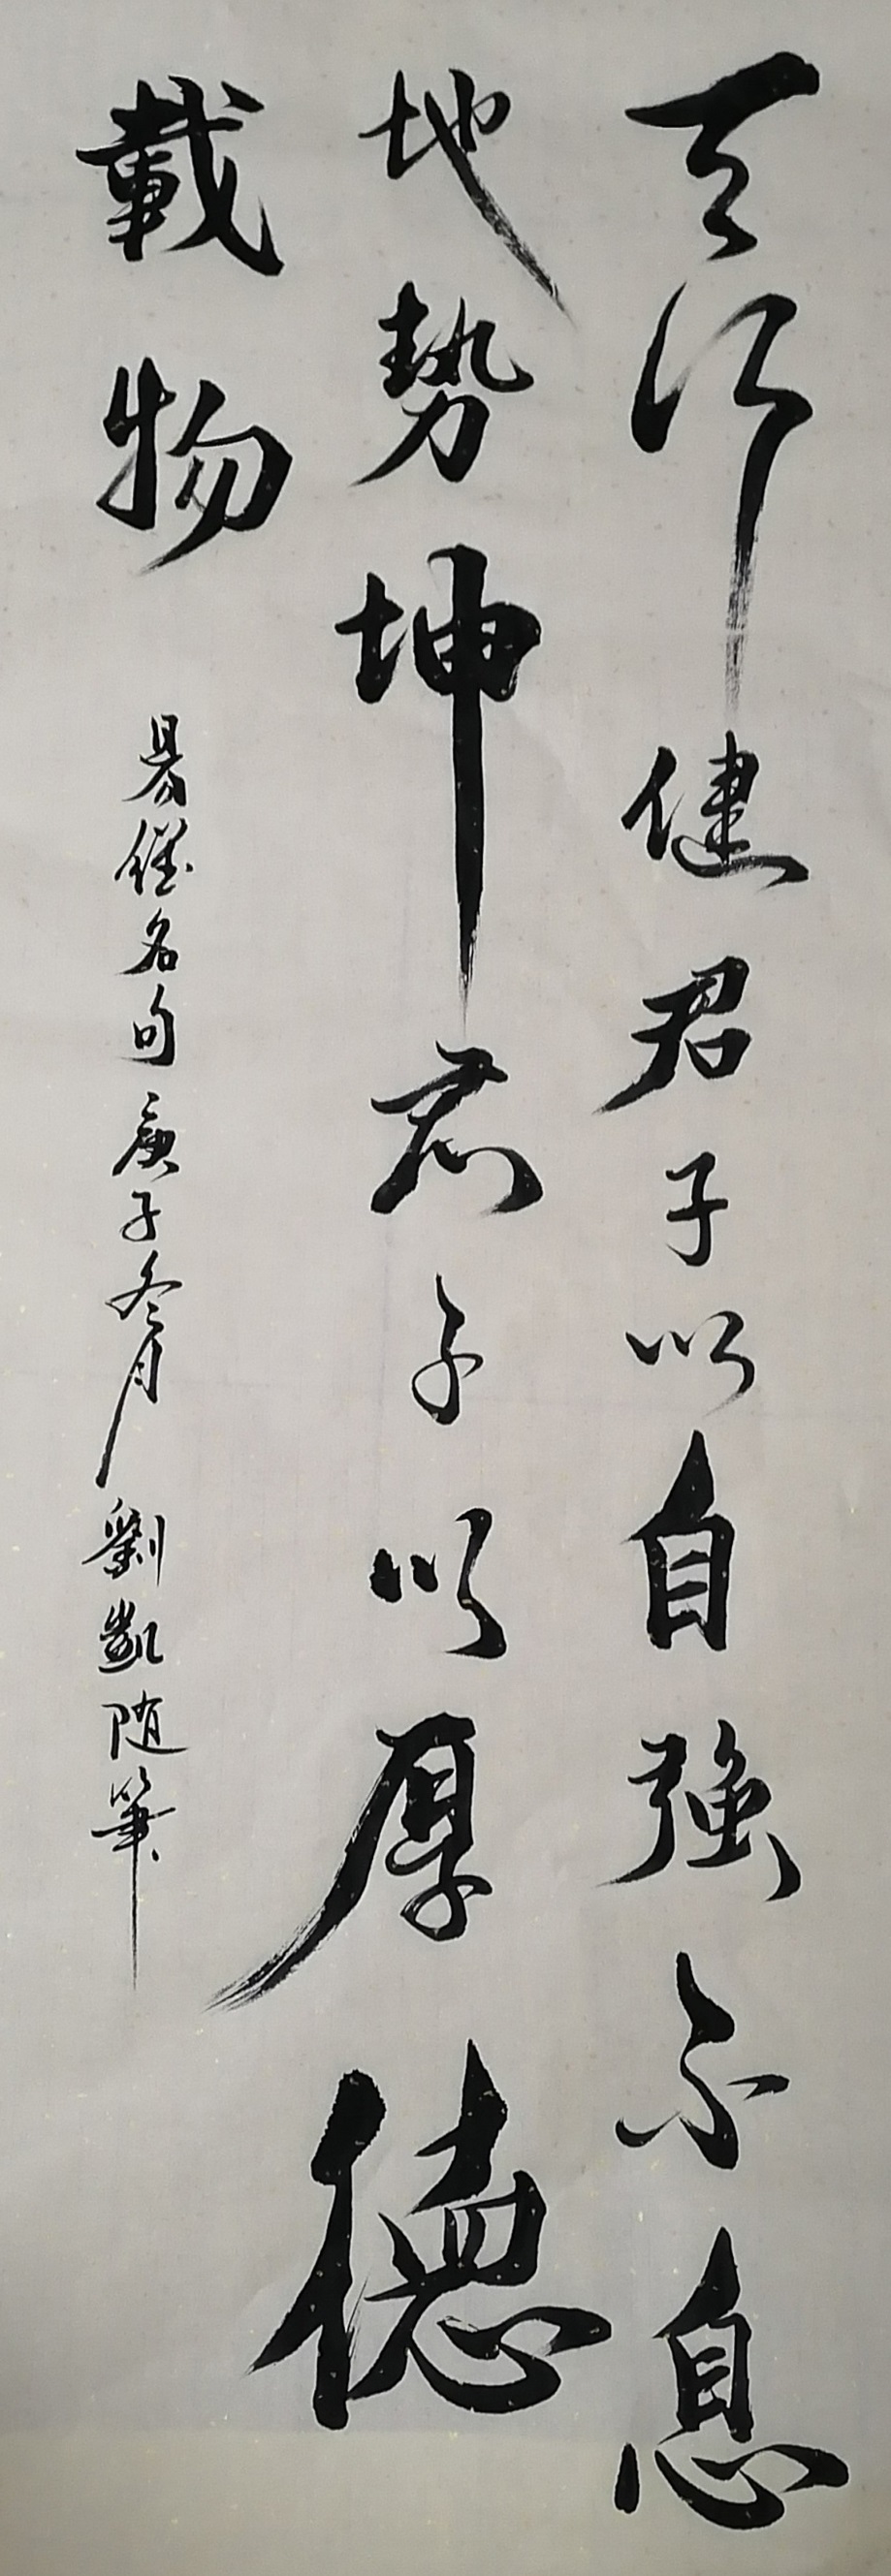 天行健君子以自強不息
地势坤君子以厚德
載物
易經名句庚子冬月劉凱随筆